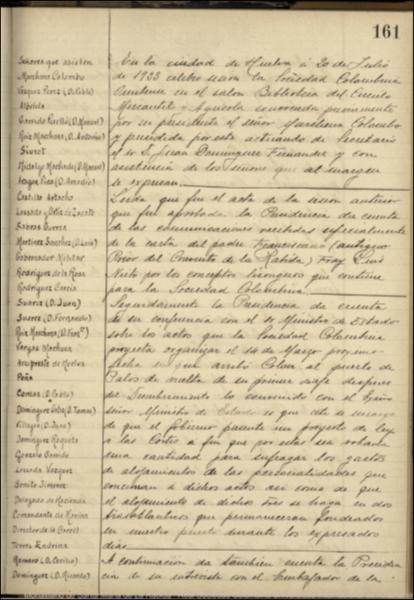 161
Señores que asisten
Marchena Colombo
Vázquez Pérez (D. Pablo)
Albelda
Garrido Perelló (D. Manuel)
Ruiz Marchena (D. Antonio)
Siurot
Hidalgo Machado (D. Manuel)
Aragón Pino (D. Amadio)
Castilla
Lossada y Ortiz de Zarate
Romero
Martínez Sánchez (D. Luis)
Gobernador Militar
Rodríguez de la Rosa
Rodríguez García
Suárez (D. Juan)
Suárez (D. Fernando)
Ruiz Marchena (D. Franco)
Vargas Machuca
Arcipreste de Huelva
Peña
Comas (D. Pablo)
Domínguez (D. Tomás)
Villegas (D. Juan)
Domínguez Roqueta
Gonzalo Garrido
Lourdes Vázquez
Benito Jiménez
Delegado de Hacienda
Comandante de Marina
Director de la Cárcel
Torres Endrina
Romero (D. Carlos)
Domínguez (D. Ricardo)
En la ciudad de Huelva á 20 de Julio
de 1933 celebró sesión la Sociedad Colombina
Onubense en el salón Biblioteca del Circulo
Mercantil y Agrícola convocada previamente
por su presidente el señor Marchena Colombo
y presidida por este actuando de Secretario
el sr D. Juan Domínguez Fernández y con
asistencia de los señores que al margen
se expresan.
Leida que fué el acta de la sesión anterior
que fué aprobada la Presidencia da cuenta
de las comunicaciones recibidas especialmente
de la carta del padre Franciscano (antiguo
Prior del Convento de la Rabida) Fray Luis
Nieto por los conceptos lisonjeros que contiene
para la Sociedad Colombina.
Seguidamente la Presidencia da cuenta
de su conferencia con el sr Ministro de Estado
sobre los actos que la Sociedad Colombina
proyecta organizar el 15 de Marzo proximo
fecha en que arribó Colon al puerto de
Palos de vuelta de su primer viaje despues
del Descubrimiento lo convenido con el dicho
señor Ministro de Estado es que este se encarga
de que el Gobierno presente un proyecto de ley
a las Cortes a fin que por estas sea votada
una cantidad para sufragar los gastos
de alojamientos de las personalidades que
concurran a dichos actos asi como de que
el alojamiento de dichos sres se haga en dos
trasatlanticos que permanecerán fondeados
en nuestro puerto durante los expresados
dias.
A continuación da tambien cuenta la Presiden
cia de su entrevista con el Embajador de la